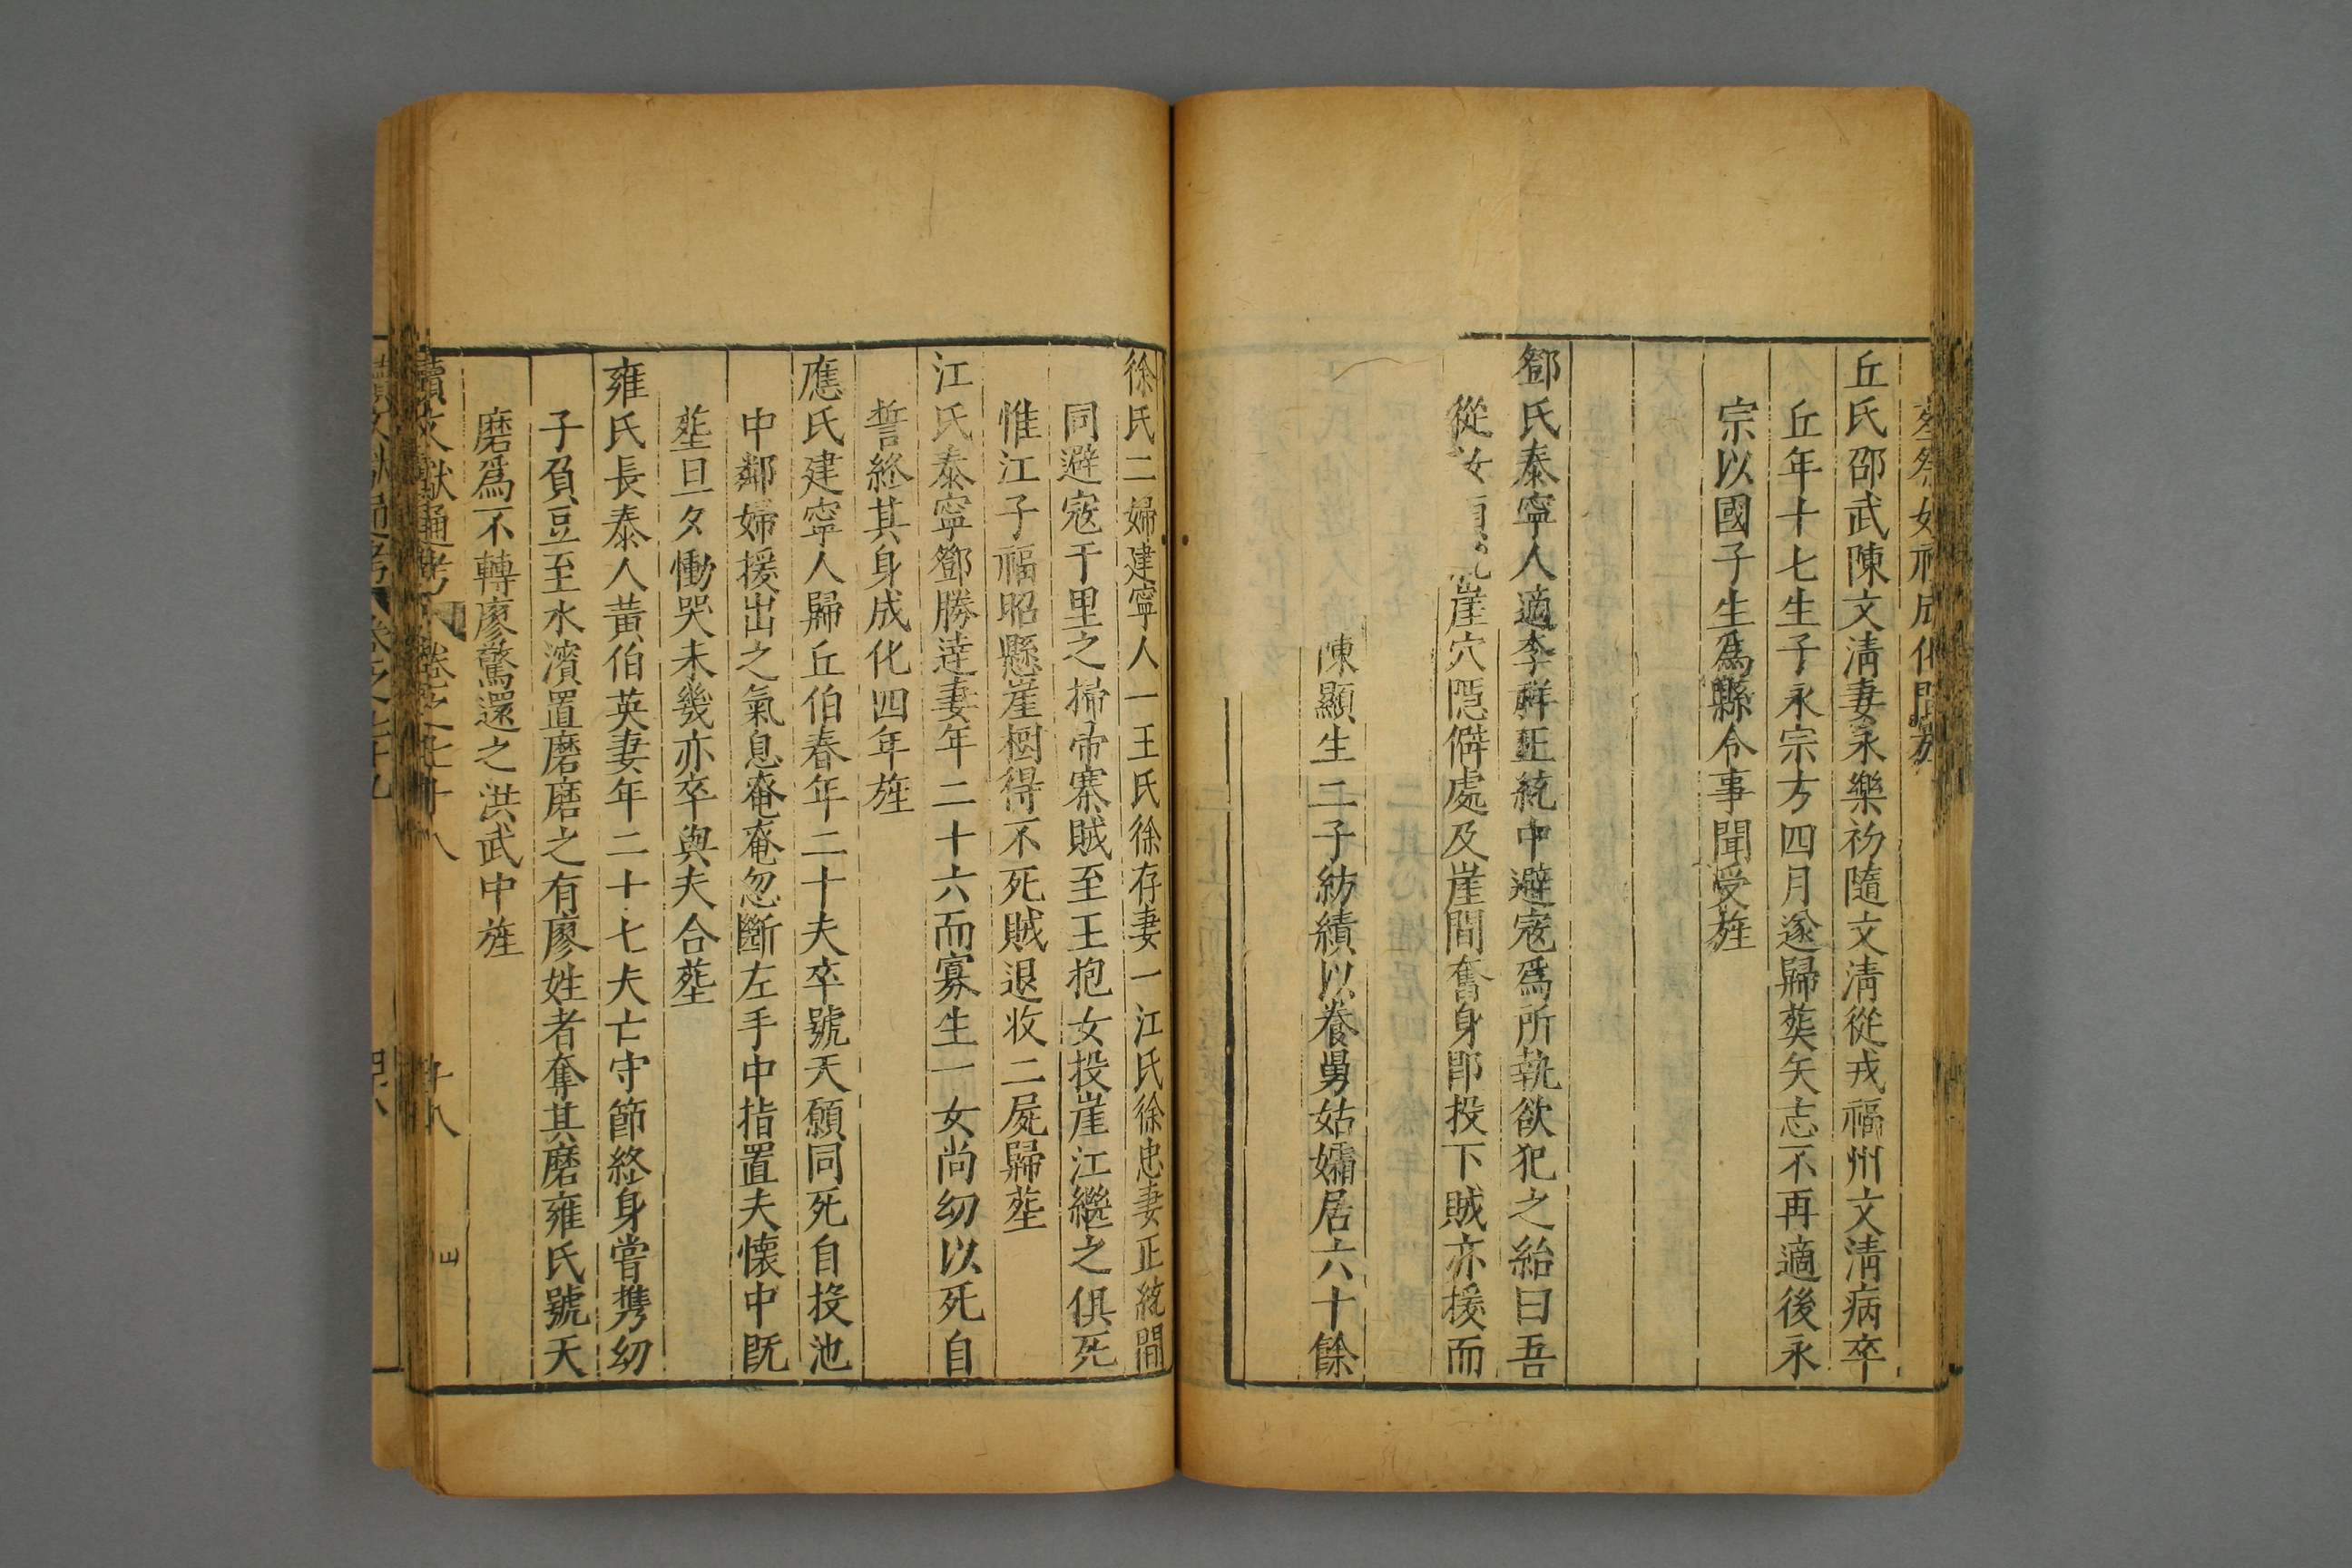 葬祭如禮成化間旌
丘氏邵武陳文清妻永樂初隨文清從戎福州文清病卒
丘年十七生子永宗方四月遂歸葬矢志不再適後永
宗以國子生爲縣令事聞受旌
鄧氏泰寧人適李祥正統中避寇爲所執欲犯之紿曰吾
從汝崖穴隱僻處及崖間奮身即投下賊亦援而
陳顯生二子紡績以養舅姑孀居六十餘
徐氏二婦建寧人一王氏徐存妻一江氏徐忠妻正統間
同避寇千里之掃帚寨賊至王抱女投崖江繼之俱死
惟江子福昭懸崖樹得不死賊退收二屍歸塟
江氏泰寧鄧勝達妻年二十六而寡生一女尚幼以死自
誓終其身成化四年旌
應氏建寧人歸丘伯春年二十夫卒號天願同死自投池
中鄰婦援出之氣息奄奄忽斷左手中指置夫懷中既
塟旦夕慟哭未幾亦卒與夫合塟
雍氏長泰人黃伯英妻年二十七夫亡守節終身嘗携幼
子負豆至水濱置磨磨之有廖姓者奪其磨雍氏號天
磨爲不轉廖驚還之洪武中旌
續文獻通考 卷之七十八 十八
續文獻通考 卷之七十九